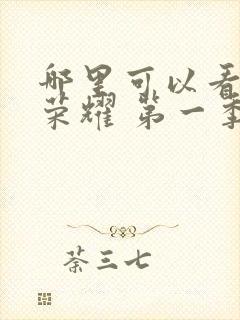 哪里可以看
荣耀 第一季
茶三七